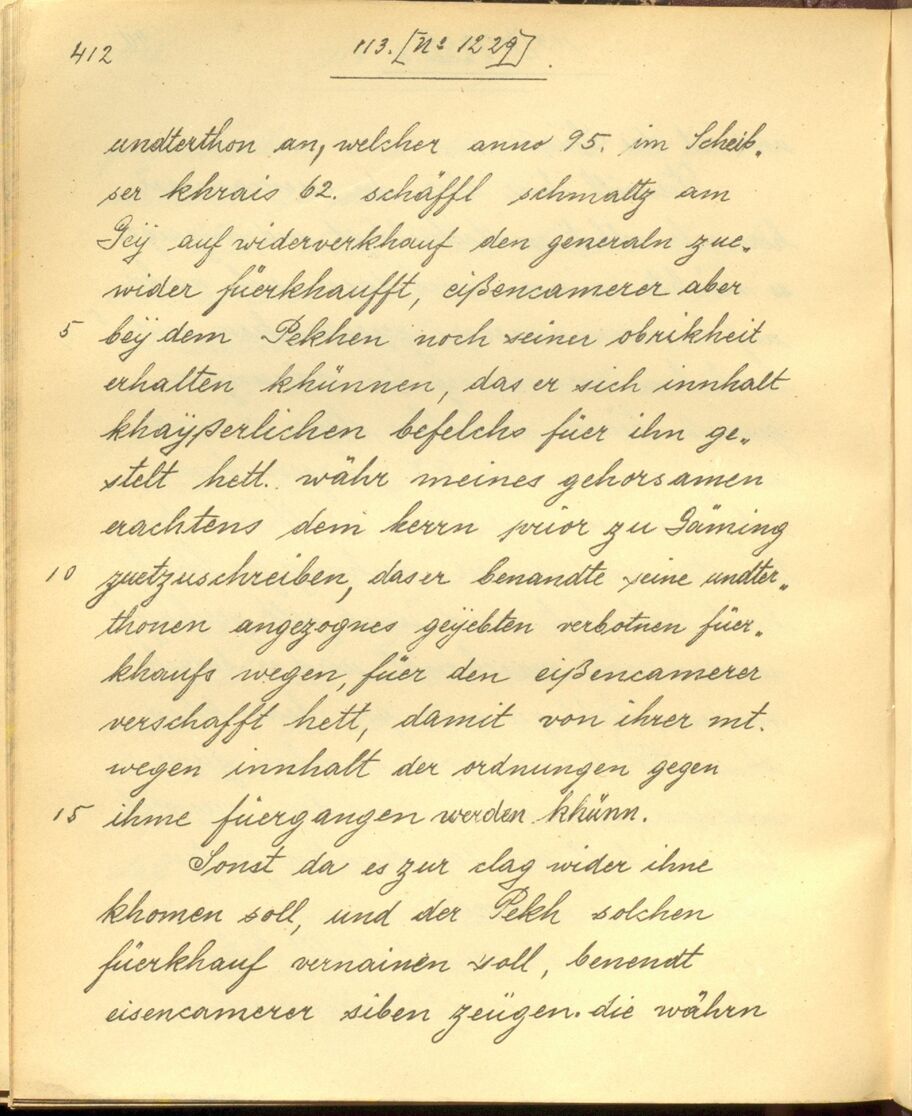 412
113. [No 1229]
undterthon an, welcher anno 95. im Scheib„
ser khrais 62. schäffl schmaltz am
Geÿ auf widerverkhauf den generaln zue„
wider füerkhaufft, eißencamerer aber
5 beÿ dem Pekhen noch seiner obrikheit
erhalten khünnen, das er sich innhalt
khaÿserlichen befelchs füer ihn ge„
stelt hett. währ meines gehorsamen
erachtens dem herrn prior zu Gäming
10 zuetzuschreiben, das er benandte seine undter„
thonen angezognes geÿebten verbotnen füer„
khaufs wegen, füer den eißencamerer
verschafft hett, damit von ihrer mt.
wegen innhalt der ordnungen gegen
15 ihme füergangen werden khünn.
Sonst da es zur clag wider ihne
khomen soll, und der Pekh solchen
füerkhauf vernainen soll, benendt
eisencamerer siben zeügen. die währn